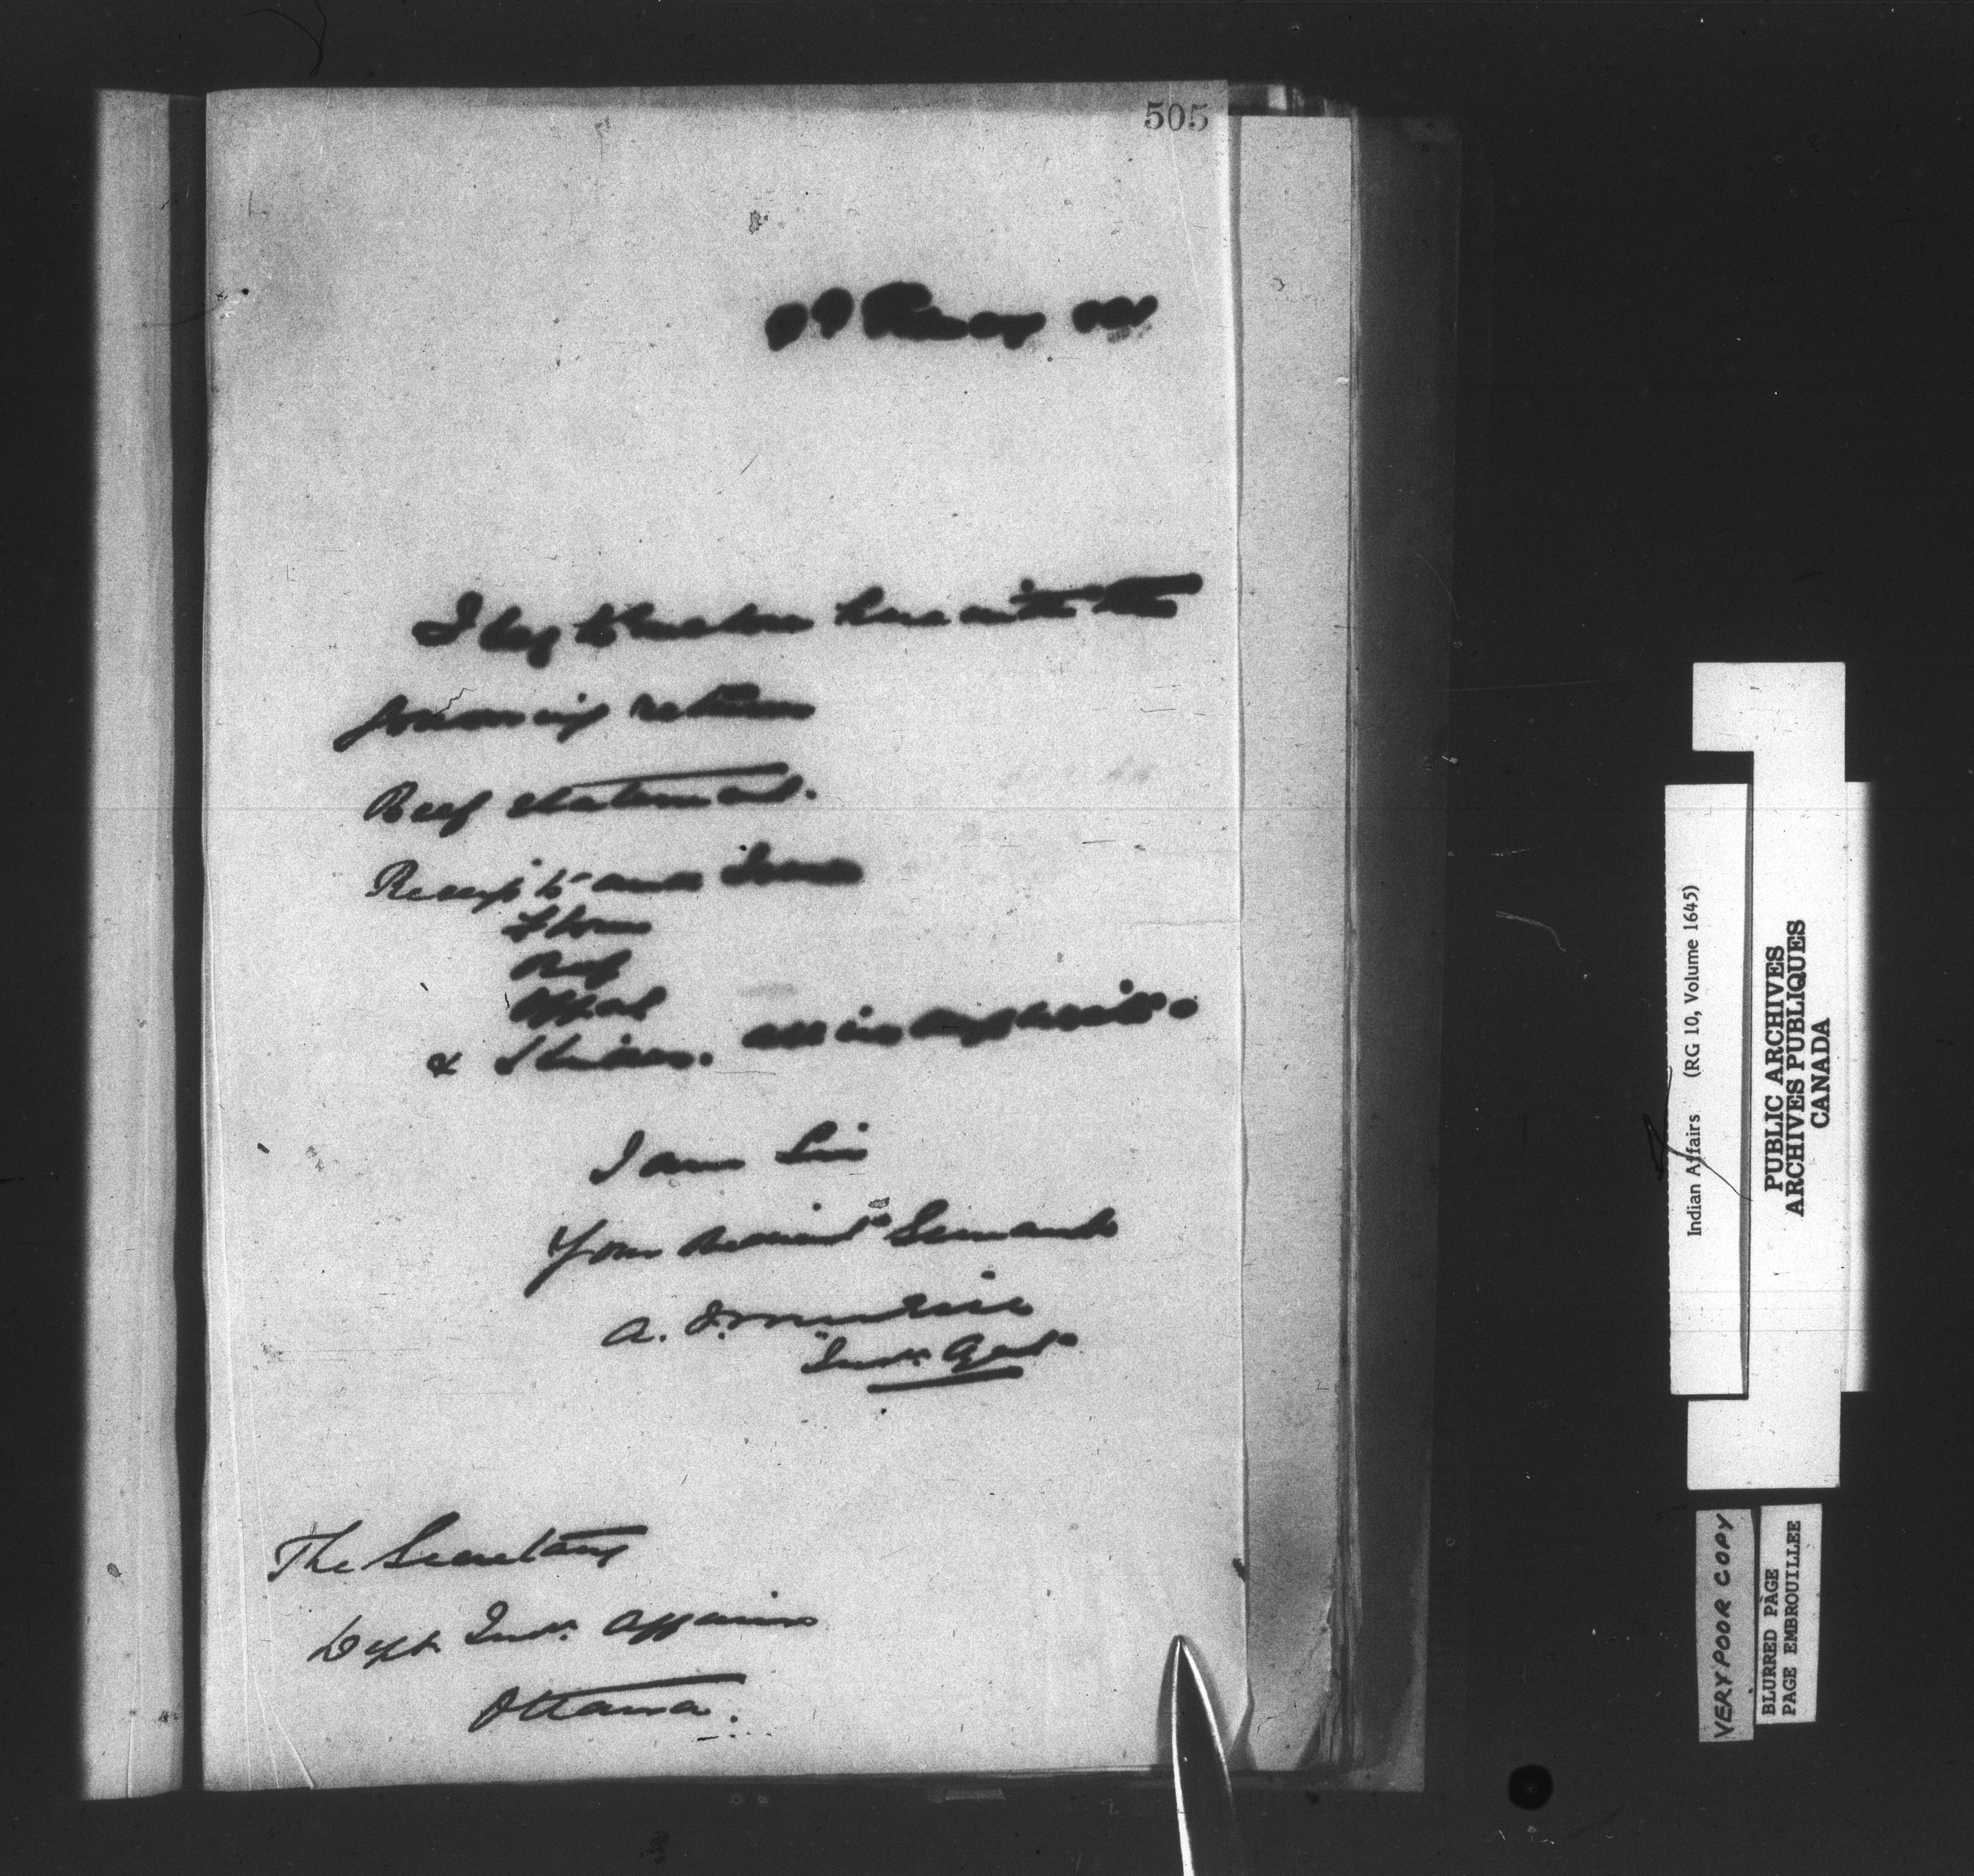 505
I beg to enclose herewith the
following returns
Beef statement.
Receipts and Issues
Flour
Beef
Offal
& Hides. all in duplicate.
I am Sir
Your obedient Servant
A.
Ind. Agent
The Secretary
Dept. Ind. Affairs
Ottawa.
Indian Affairs (RG 10, Volume 1645)
PUBLIC ARCHIVES
ARCHIVES PUBLIQUES
CANADA
VERY POOR COPY
BLURRED PAGE
PAGE EMBROUILLEE